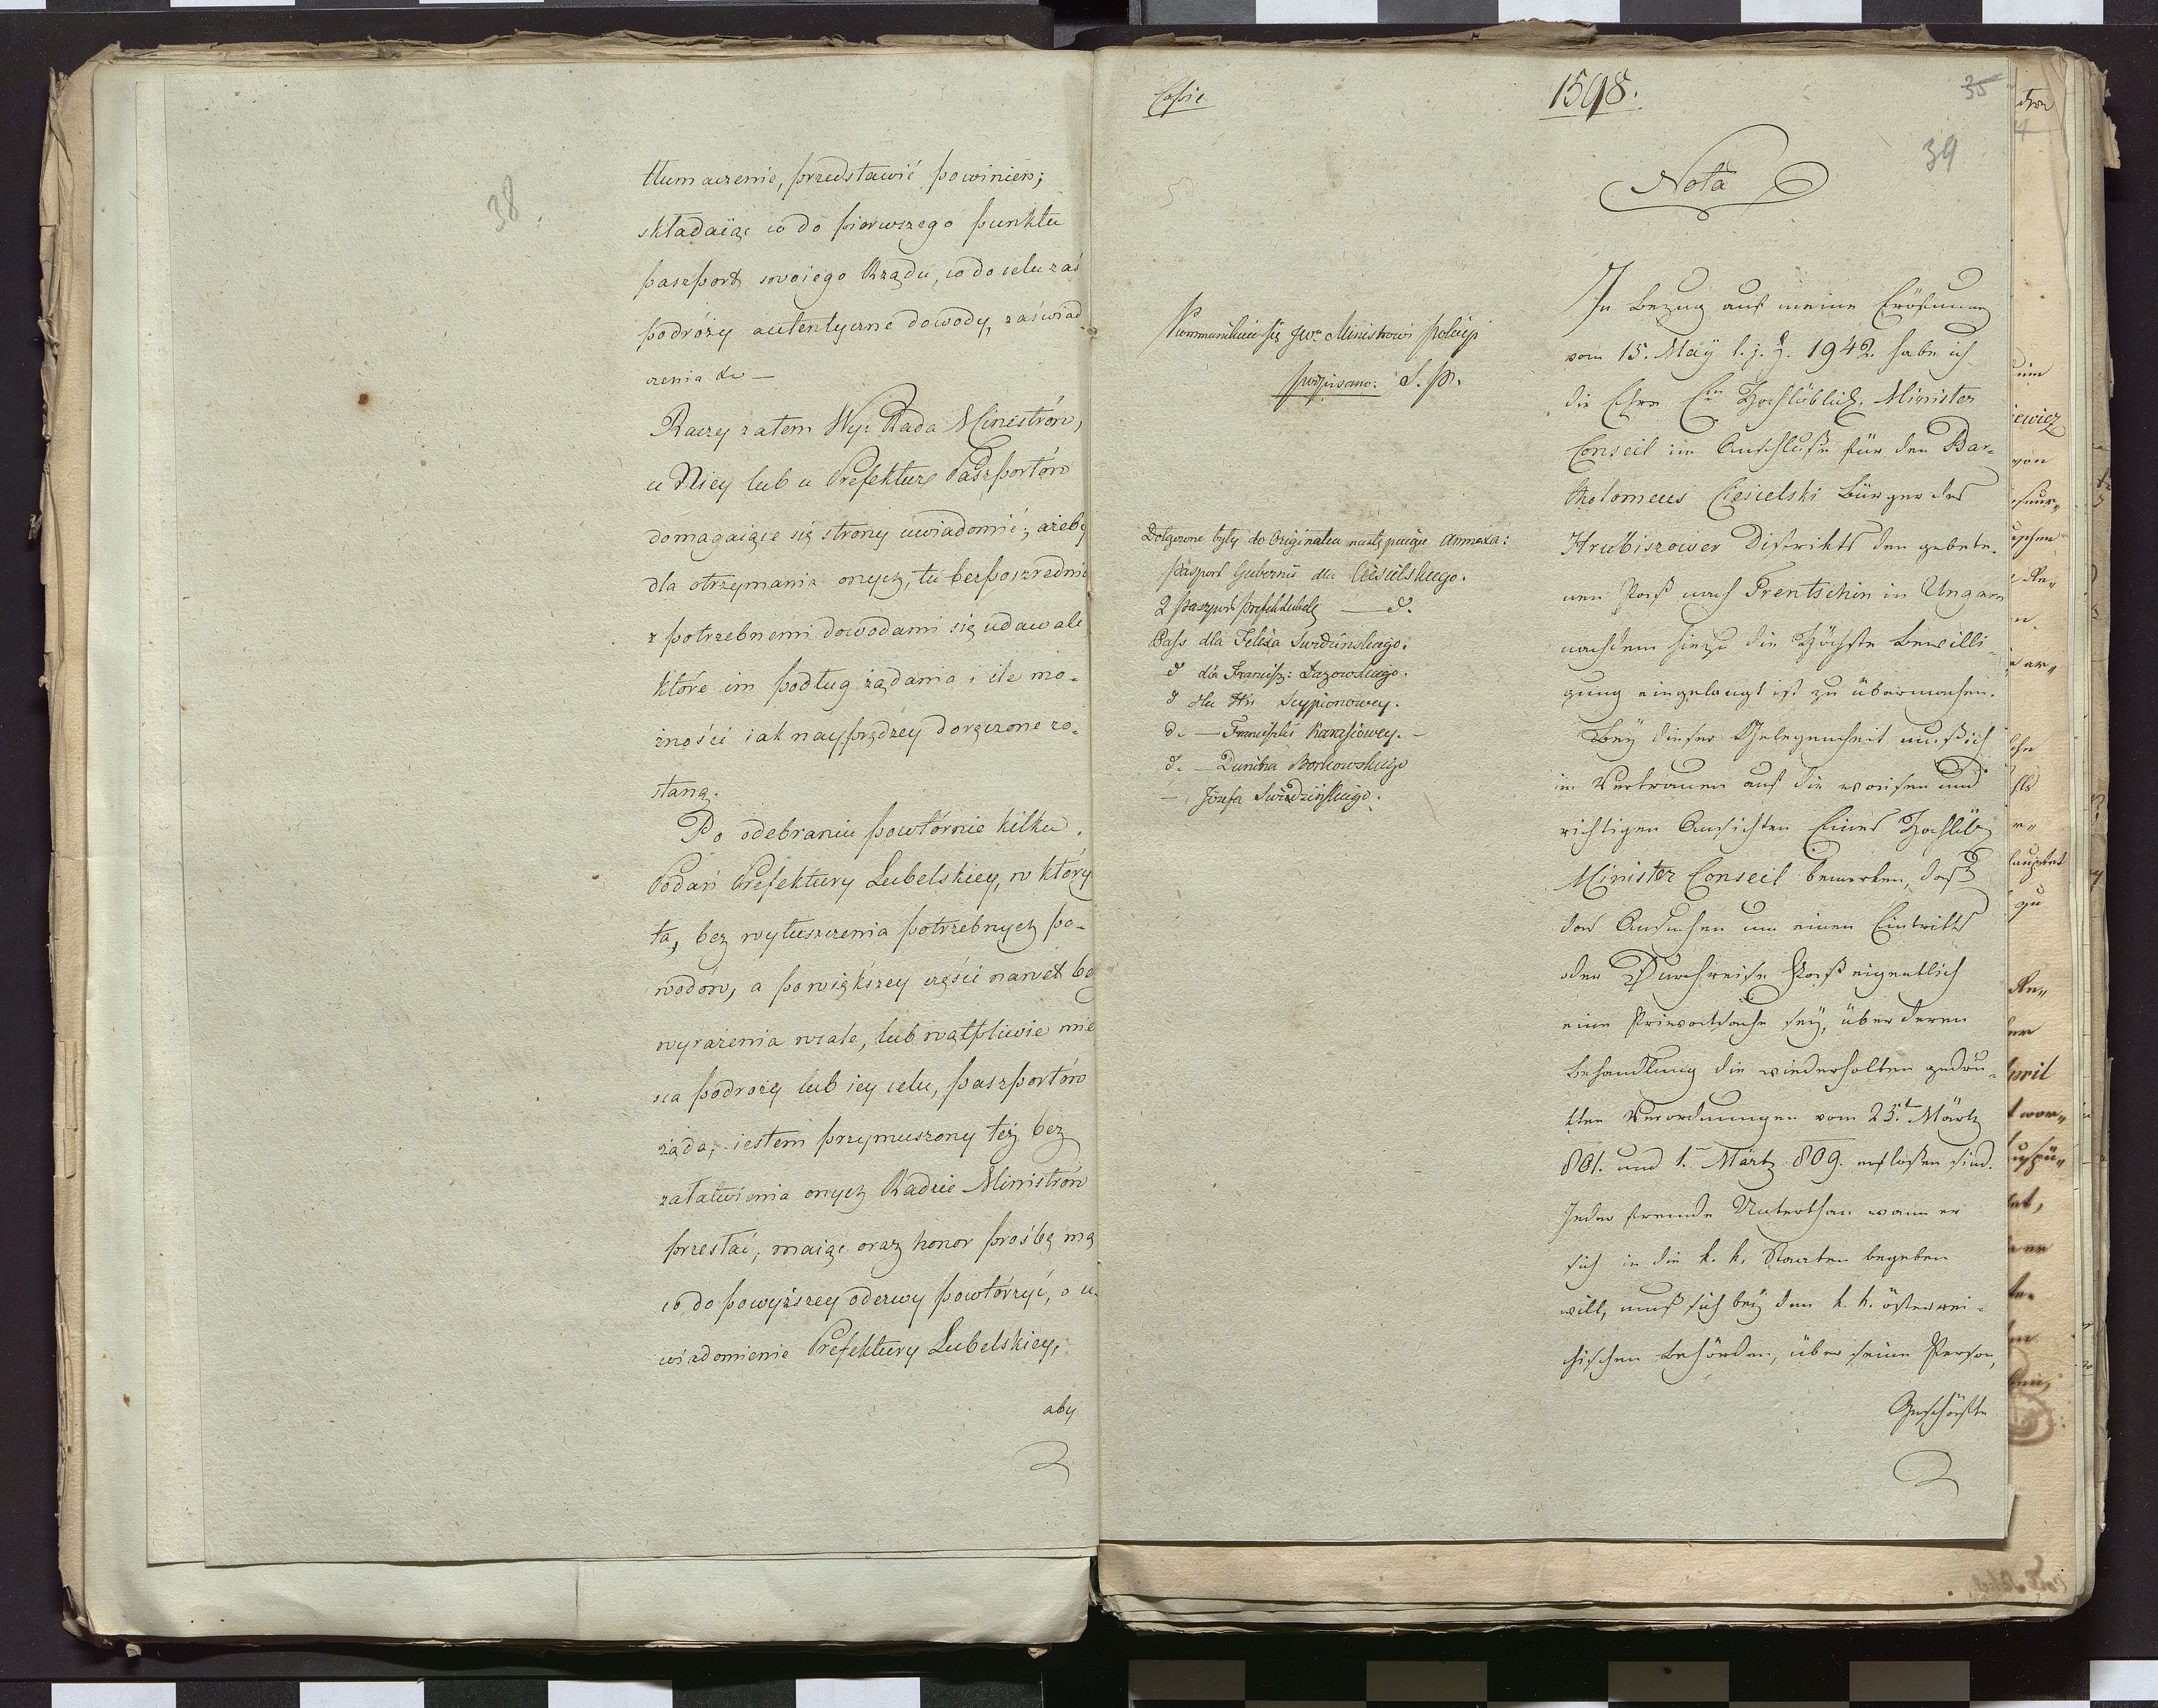 38.
tłumaczenie, przedstawić powinien;
składaiąc co do pierwszego punktu
paszport swoiego Rządu, co do celu zaś
podróży autentyczne dowody, zaświad
czenia etc —
Raczy zatem Wys: Rada Ministrów,
u Niey lub u Prefektury Paszportów
domagaiące się strony uwiadomić; ażeby
dla otrzymania onych, tu bezpośrednie
z potrzebnemi dowodami się udawałe
które im podług żądania i ile mo-
żności iak nayprędzey doręczone zo-
staną.
Po odebraniu powtórnie kilku
Podań Prefektury Lubelskiey, w który
ta, bez wyłuszczenia potrzebnych po-
wodów, a powiększey części nawet be
wyrażenia wcale, lub wątpliwie mie
sca podroży lub iey celu, paszportów
żąda, iestem przymuszony też bez
załatwienia onych Radzie Ministrów
przesłać, maiąc oraz honor prośbę mą
co do powyższey odezwy powtórzyć, o u-
wiadomienie Prefektury Lubelskiey,
aby
Copie
1598.
35
39
Nota
Kommunikuie się JWu Ministrowi Policyi
podpisano. S. P.
Dołączone były do Originału następuiące Annexa:
Pasport Gubernii dla Ciesielskiego.
2 Paszport Prefek Lubels — d.
Pass dla Felixa Swidzinskiego.
d dla Francisz: Łazowskiego.
d dla Hr. Scypionowey.
d. — Franciszki Karasiowey. —
d. — Dunina Borkowskiego
— Józefa Swidzińskiego.
In Bezug auf meine Eröfnung
vom 15. Maÿ l. j. Z. 1942. habe ich
die Ehre Ein Hochlöblich. Minister
Conseil im Anschluße für den Bar-
tholomeus Ciesielski Bürger des
Hrubiszower Distrikts den gebete-
nen Paß nach Trentschin in Ungarn
nachdem hiezu die Höchste Bewilli-
gung eingelangt ist zu übermachen.
Beÿ dieser Gelegenheit muß ich
im Vertrauen auf die weisen und
richtigen Ansichten Eines Hochlöb
Minister Conseil bemerken, daß
das Ansuchen um einen Eintritts
oder Durchreise Paß eigentlich
eine Privatsache seÿ, über deren
Behandlung die wiederholten gedru-
kten Verordnungen vom 25.t Märtz
801. und 1. Märtz 809. erfloßen sind.
Jeder fremde Unterthan wann er
sich in die k. k. Staaten begeben
will, muß sich beÿ den k. k. österrei-
chischen Behörden, über seine Person,
Geschäfte